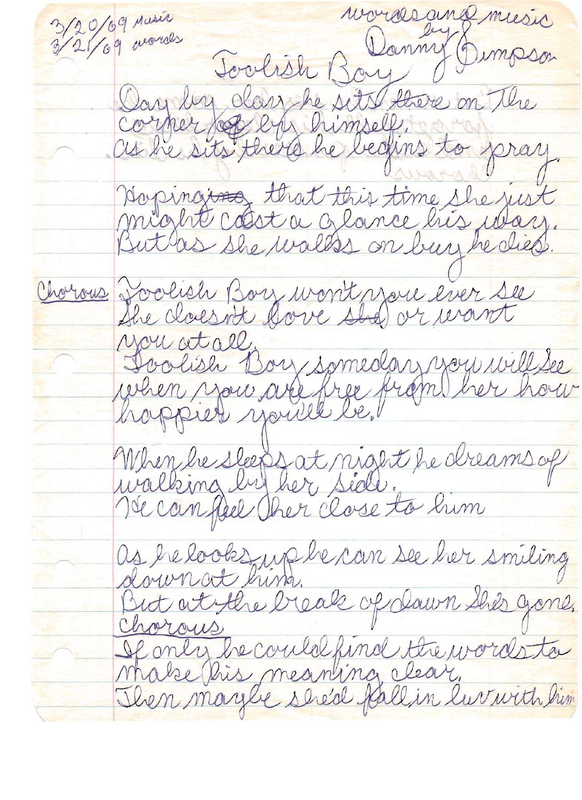 3/20/09 Music
3/21/09 words
words and music
by
Danny Simpson
Foolish Boy
Day by day he sits there on the
corner of by himself.
As he sits there he begins to pray.
Hopinging that this time she just
might cast a glance his way.
But as she walks on buy he dies.
Chorous
Foolish Boy won't you ever see
She doesn't love she or want
you at all.
Foolish Boy someday you will see
when you are free from her how
happier you'll be.
When he sleeps at night he dreams of
walking by her side.
He can feel her close to him
As he looks up he can see her smiling
down at him.
But at the break of dawn She's gone.
Chorous
If only he could find the words to
make his meaning clear.
Then maybe she'd fall in luv with him